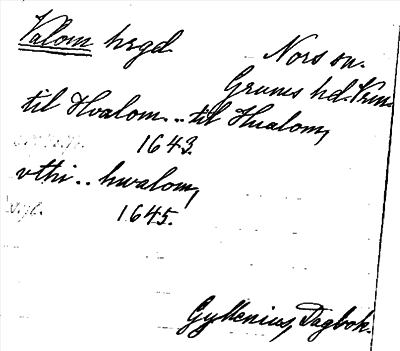 Valom hrgd.
Nors sn.
Grums hd. Vrm.
til Hvalom .. til Hualom,
1643.
vthi .. hwalom,
1645.
Gyllenius, Dagbok.